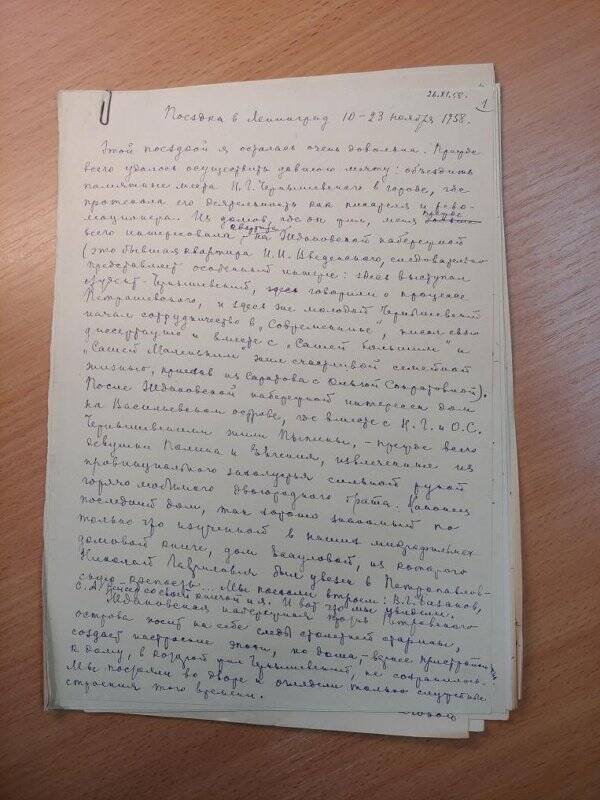 26.XI.58.
1
Поездка в Ленинград 10–23 ноября 1958.
Этой поездкой я осталась очень довольна. Прежде
всего удалось осуществить давнюю мечту: объездить
памятные места Н.Г. Чернышевского в городе, где
протекала его деятельность как писателя и рево-
люционера. Из домов, где он жил, меня прежде
всего интересовала квартира на Ждановской набережной
(это бывшая квартира И.И. Введенского, следовательно
представляет особенный интерес: здесь выступал
студент-Чернышевский, здесь говорили о процессе
Петрашевского, и здесь же молодой Чернышевский
начал сотрудничество в „Современнике", писал свою
диссертацию и вместе с „Сашей большим" и
„Сашей Маленьким" жил счастливой семейной
жизнью, приехав из Саратова с Ольгой Сократовной).
После Ждановской набережной интересен дом
на Васильевском острове, где вместе с Н.Г. и О.С.
Чернышевскими жили Пыпины, – прежде всего
девушки Полина и Евгения, извлеченные из
провинциального захолустья сильной рукой
горячо любимого двоюродного брата. Наконец
последний дом, так хорошо знакомый по
только что изученной в наших микрофильмах
домовой книге, дом Есауловой, из которого
Николай Гаврилович был увезен в Петропавлов-
скую крепость... Мы поехали втроем: В.Г. Базанов,
С.А. Рейсер со своей книгой и я. И вот что мы увидели.
Ждановская набережная Петровского
острова носит на себе следы столетней старины,
создает настроение эпохи, но дома, – вернее пристройки
к дому, в которой жил Чернышевский, не сохранилось.
Мы постояли во дворе и оглядели только служебные
строения этого времени.